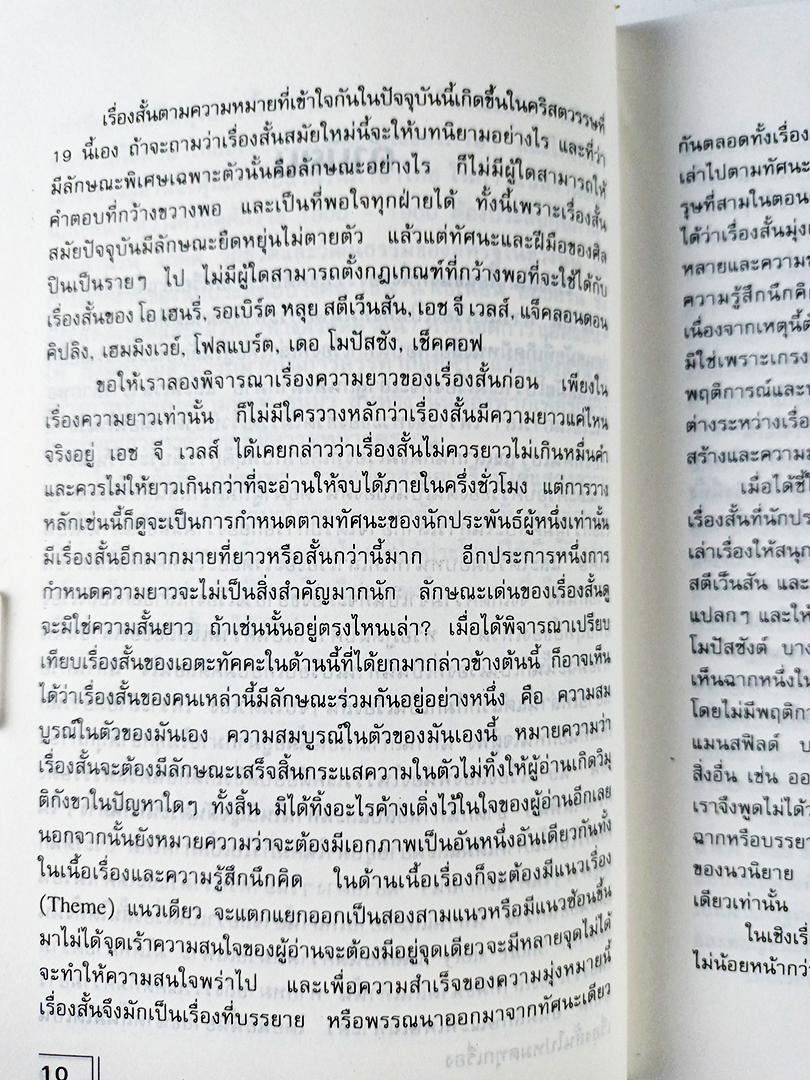 เรื่องสั้นตามความหมายที่เข้าใจกันในปัจจุบันนี้เกิดขึ้นในคริสตวรรษที่
19 นี้เอง ถ้าจะถามว่าเรื่องสั้นสมัยใหม่นี้จะให้บทนิยามอย่างไร และที่ว่า
มีลักษณะพิเศษเฉพาะตัวนั้นคือลักษณะอย่างไร ก็ไม่มีผู้ใดสามารถให้
คำตอบที่กว้างขวางพอ และเป็นที่พอใจทุกฝ่ายได้ ทั้งนี้เพราะเรื่องสั้น
สมัยปัจจุบันมีลักษณะยืดหยุ่นไม่ตายตัว แล้วแต่ทัศนะและฝีมือของศิล
ปินเป็นรายๆ ไป ไม่มีผู้ใดสามารถตั้งกฎเกณฑ์ที่กว้างพอที่จะใช้ได้กับ
เรื่องสั้นของ โอ เฮนรี่, รอเบิร์ต หลุย สตีเว็นสัน, เอช จี เวลส์, แจ็คลอนดอน
คิปลิง, เฮมมิงเวย์, โฟลแบร์ต, เดอ โมปัสซัง, เช็คคอฟ
ขอให้เราลองพิจารณาเรื่องความยาวของเรื่องสั้นก่อน เพียงใน
เรื่องความยาวเท่านั้น ก็ไม่มีใครวางหลักว่าเรื่องสั้นมีความยาวแค่ไหน
จริงอยู่ เอช จี เวลส์ ได้เคยกล่าวว่าเรื่องสั้นไม่ควรยาวไม่เกินหมื่นคำ
และควรไม่ให้ยาวเกินกว่าที่จะอ่านให้จบได้ภายในครึ่งชั่วโมง แต่การวาง
หลักเช่นนี้ก็ดูจะเป็นการกำหนดตามทัศนะของนักประพันธ์ผู้หนึ่งเท่านั้น
มีเรื่องสั้นอีกมากมายที่ยาวหรือสั้นกว่านี้มาก อีกประการหนึ่งการ
กำหนดความยาวจะไม่เป็นสิ่งสำคัญมากนัก ลักษณะเด่นของเรื่องสั้นดู
จะมิใช่ความสั้นยาว ถ้าเช่นนั้นอยู่ตรงไหนเล่า? เมื่อได้พิจารณาเปรียบ
เทียบเรื่องสั้นของเอตะทัคคะในด้านนี้ที่ได้ยกมากล่าวข้างต้นนี้ ก็อาจเห็น
ได้ว่าเรื่องสั้นของคนเหล่านี้มีลักษณะร่วมกันอยู่อย่างหนึ่ง คือ ความสม
บูรณ์ในตัวของมันเอง ความสมบูรณ์ในตัวของมันเองนี้ หมายความว่า
เรื่องสั้นจะต้องมีลักษณะเสร็จสิ้นกระแสความในตัวไม่ทิ้งให้ผู้อ่านเกิดวิมุ
ติกังขาในปัญหาใดๆ ทั้งสิ้น มิได้ทิ้งอะไรค้างเติ่งไว้ในใจของผู้อ่านอีกเลย
นอกจากนั้นยังหมายความว่าจะต้องมีเอกภาพเป็นอันหนึ่งอันเดียวกันทั้ง
ในเนื้อเรื่องและความรู้สึกนึกคิด ในด้านเนื้อเรื่องก็จะต้องมีแนวเรื่อง
(Theme) แนวเดียว จะแตกแยกออกเป็นสองสามแนวหรือมีแนวซ้อนขึ้น
มาไม่ได้จุดเร้าความสนใจของผู้อ่านจะต้องมีอยู่จุดเดียวจะมีหลายจุดไม่ได้
จะทำให้ความสนใจพร่าไป และเพื่อความสำเร็จของความมุ่งหมายนี้
เรื่องสั้นจึงมักเป็นเรื่องที่บรรยาย หรือพรรณนาออกมาจากทัศนะเดียว
10
กันตลอดทั้งเรื่อง
เล่าไปตามทัศนะ
รุษที่สามในตอน
ได้ว่าเรื่องสั้นมุ่ง
หลายและความ
ความรู้สึกนึกคิด
เนื่องจากเหตุนี้
มิใช่เพราะเกรง
พฤติการณ์และ
ต่างระหว่างเรื่อง
สร้างและความ
เมื่อได้ชี้
เรื่องสั้นที่นักประ
เล่าเรื่องให้สนุก
สตีเว็นสัน และ
แปลกๆ และให้
โมปัสซังต์ บาง
เห็นฉากหนึ่งใน
โดยไม่มีพฤติกา
แมนสฟิลด์ บ
สิ่งอื่น เช่น ออ
เราจึงพูดไม่ได้ว
ฉากหรือบรรยา
ของนวนิยาย
เดียวเท่านั้น
ในเชิงเรื่
ไม่น้อยหน้ากว่